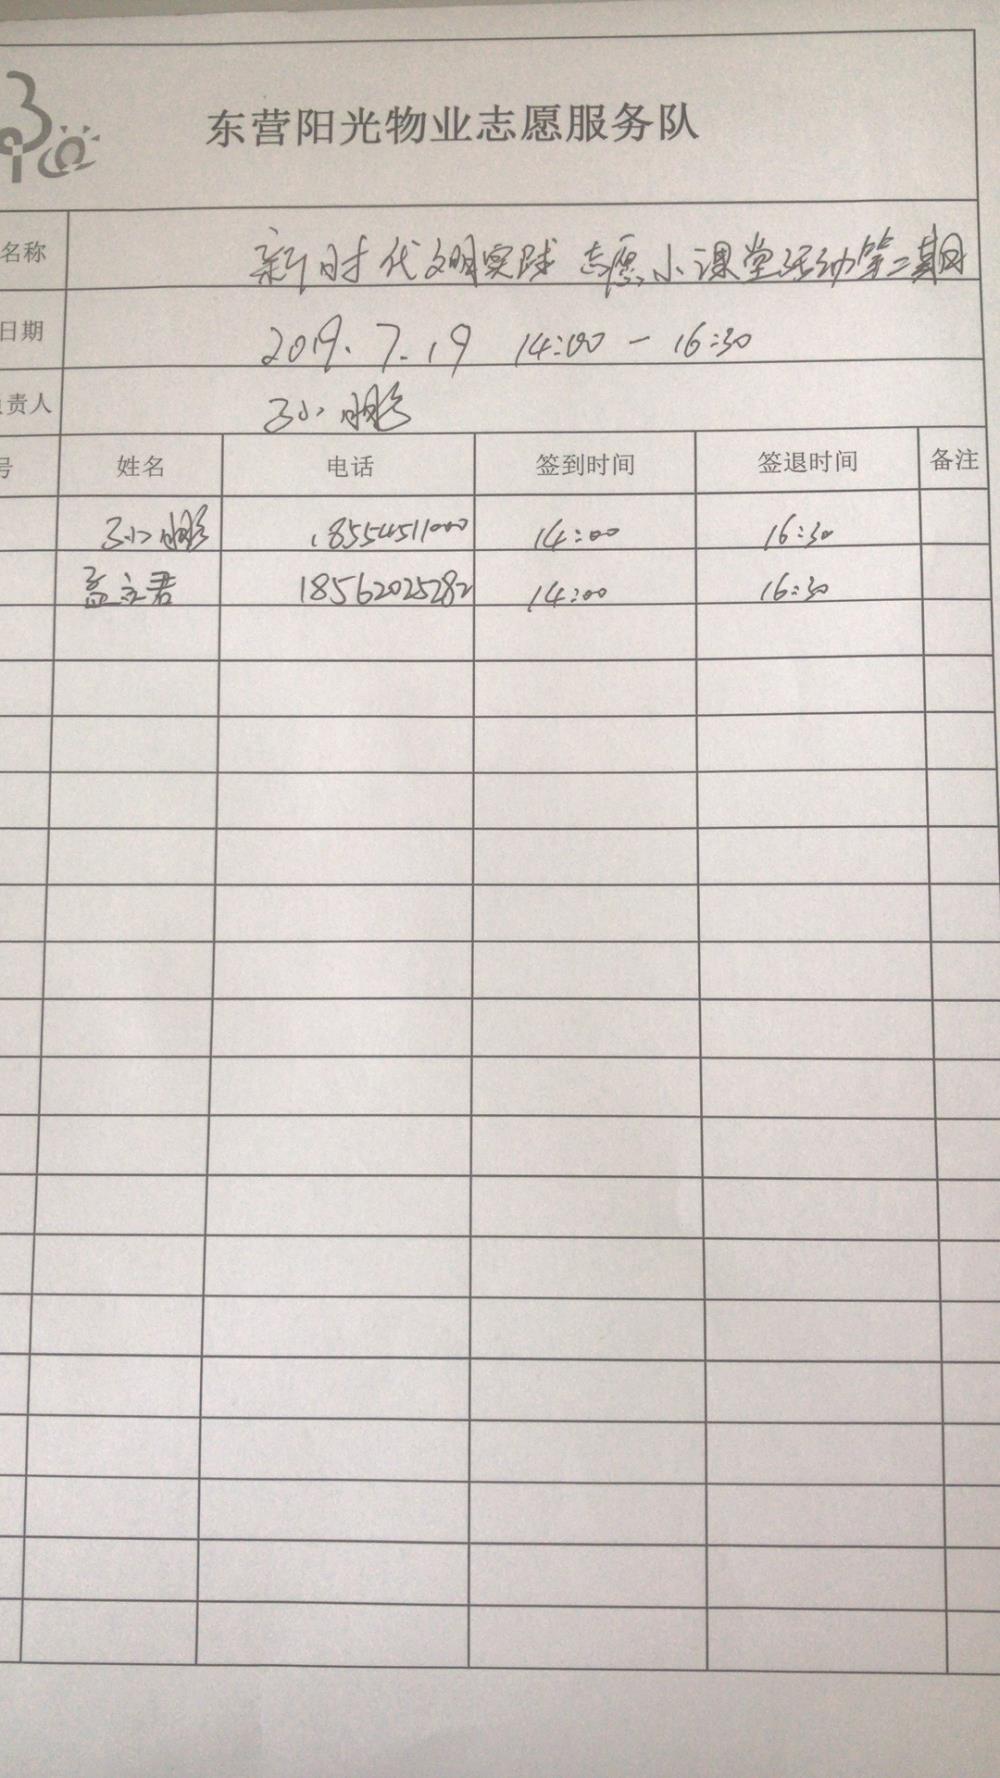 东营阳光物业志愿服务队
名称 新时代文明实践志愿小课堂活动第二期
日期 2019.7.19 14:00-16:30
负责人 孙鹏
号 姓名 电话 签到时间 签退时间 备注
孙鹏 18554511000 14:00 16:30
孟立君 18562025282 14:00 16:30